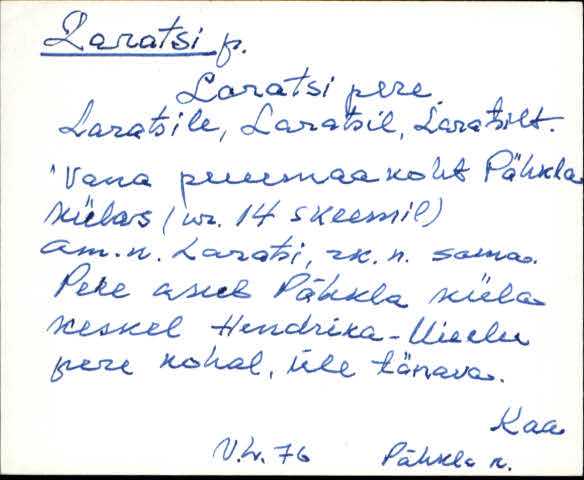 Laratsi p.
Laratsi pere.
Laratsile, Laratsil, Laratsilt.
Vana peremaa koht Pähkla
külas (nr. 14 skeemil)
am.n. Laratsi, rk. n. sama.
Pere asub Pähkla küla
keskel Hendrika-Uielu
pere kohal, üle tänava.
Kaa
V.L. 76 Pähkla k.